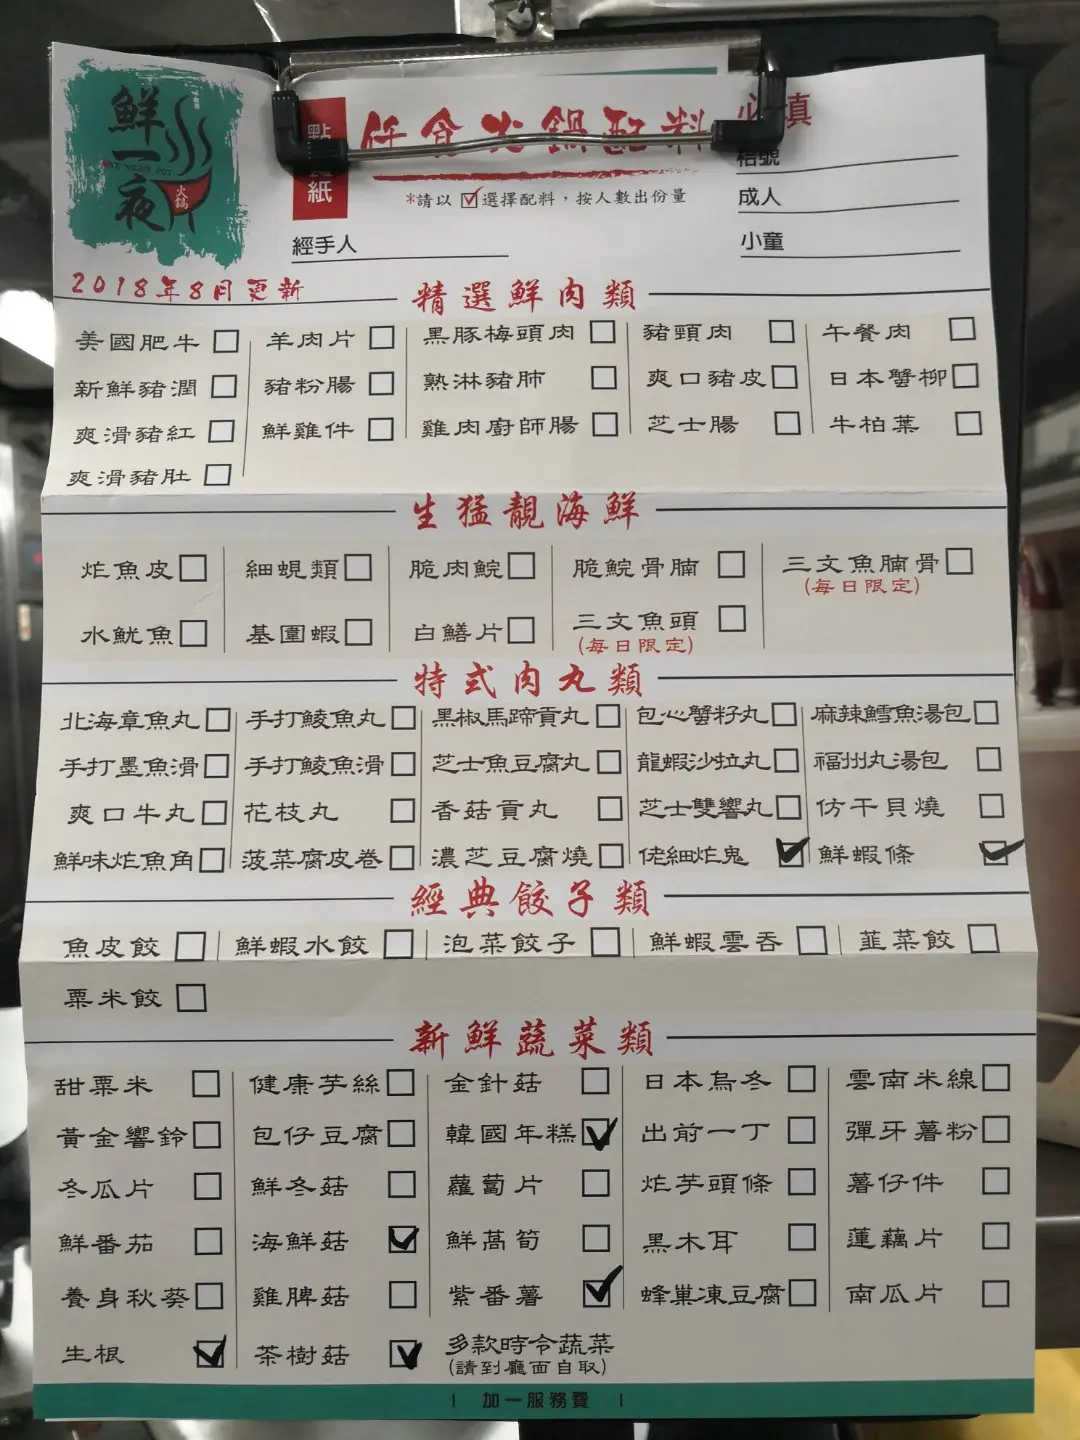 鮮一夜
火鍋
紙
任食火鍋配料
必填
*請以☑選擇配料，按人數出份量
枱號
成人
小童
經手人
2018年8月更新
精選鮮肉類
美國肥牛 羊肉片 黑豚梅頭肉 豬頸肉 午餐肉
新鮮豬潤 豬粉腸 熟淋豬肺 爽口豬皮 日本蟹柳
爽滑豬紅 鮮雞件 雞肉廚師腸 芝士腸 牛柏葉
爽滑豬肚
生猛靚海鮮
炸魚皮 細蜆類 脆肉鯇 脆鯇骨腩 三文魚腩骨
(每日限定)
水魷魚 基圍蝦 白鱔片 三文魚頭
(每日限定)
特式肉丸類
北海章魚丸 手打鯪魚丸 黑椒馬蹄貢丸 包心蟹籽丸 麻辣鱈魚湯包
手打墨魚滑 手打鯪魚滑 芝士魚豆腐丸 龍蝦沙拉丸 福州丸湯包
爽口牛丸 花枝丸 香菇貢丸 芝士雙響丸 仿干貝燒
鮮味炸魚角 菠菜腐皮卷 濃芝豆腐燒 佬細炸鬼 鮮蝦條
經典餃子類
魚皮餃 鮮蝦水餃 泡菜餃子 鮮蝦雲吞 韮菜餃
粟米餃
新鮮蔬菜類
甜粟米 健康芋絲 金針菇 日本烏冬 雲南米線
黃金響鈴 包仔豆腐 韓國年糕 出前一丁 彈牙薯粉
冬瓜片 鮮冬菇 蘿蔔片 炸芋頭條 薯仔件
鮮番茄 海鮮菇 鮮萵筍 黑木耳 蓮藕片
養身秋葵 雞脾菇 紫番薯 蜂巢凍豆腐 南瓜片
生根 茶樹菇 多款時令蔬菜
(請到廳面自取)
| 加一服務費 |